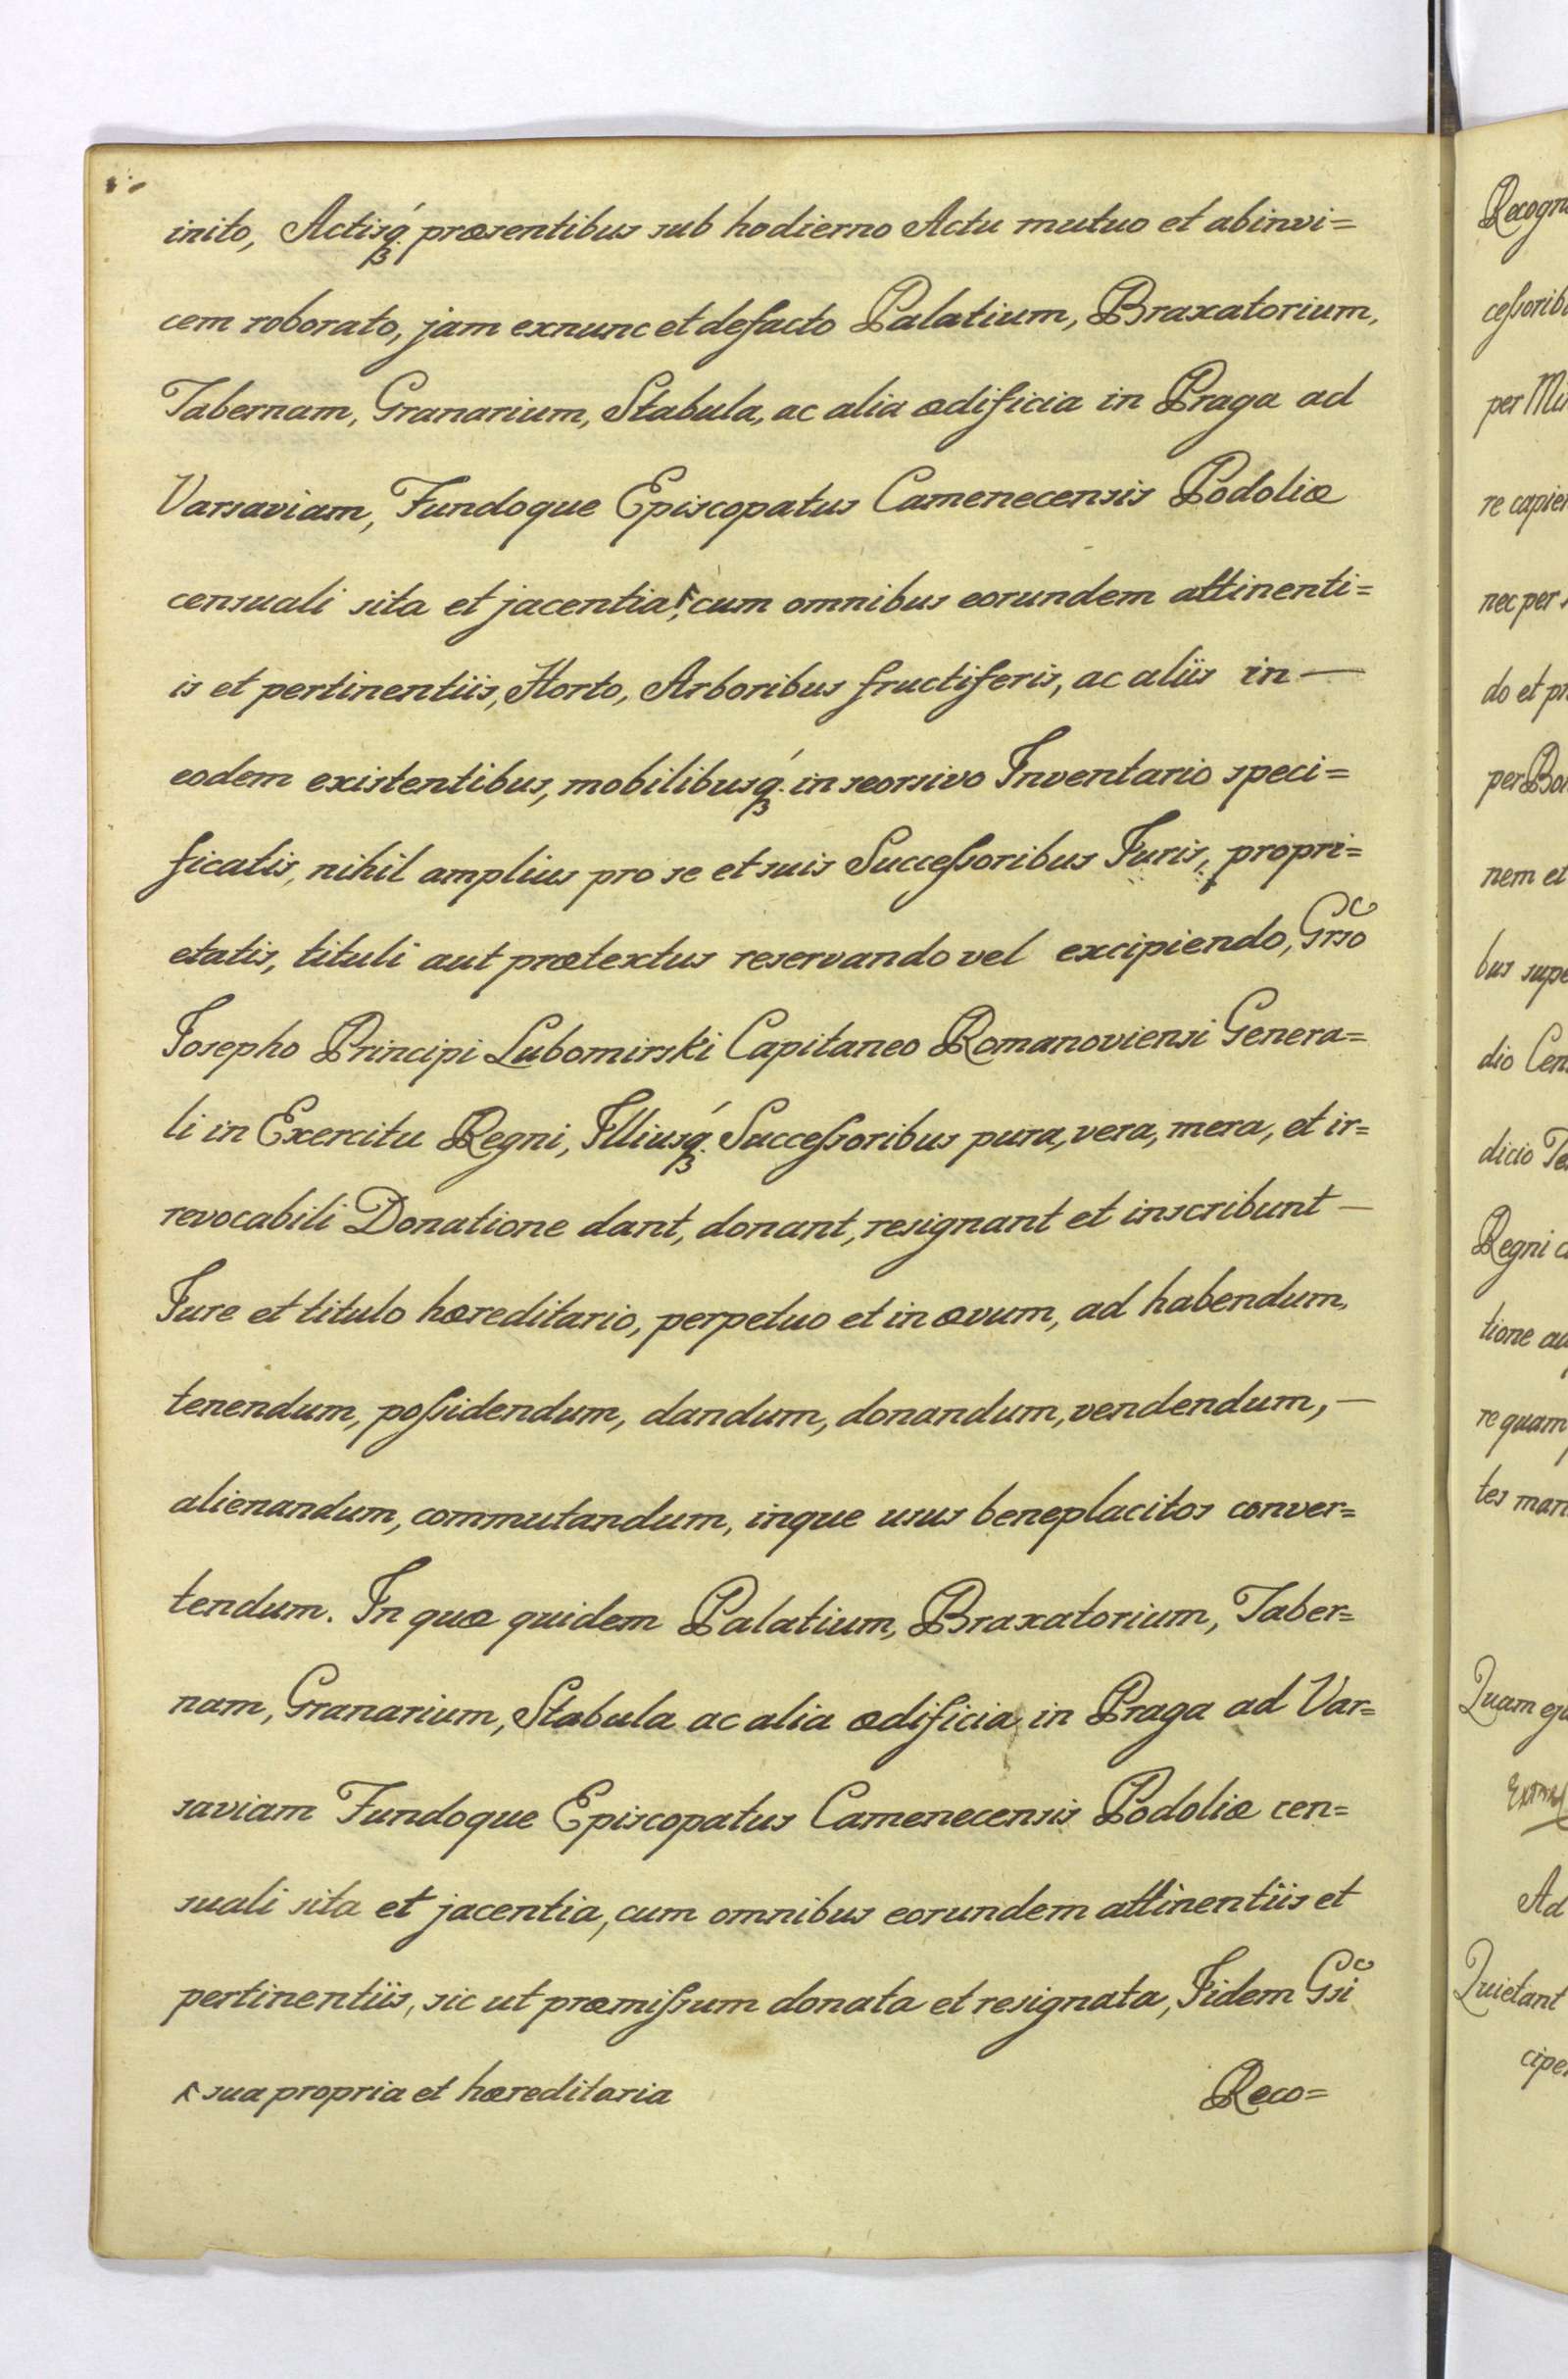 inito, Actisq́ præsentibus sub hodierno Actu mutuo et abinvi=
cem roborato, jam exnunc et defacto Palatium, Braxatorium,
Tabernam, Granarium, Stabula, ac alia ædificia in Praga ad
Varsaviam, Fundoque Episcopatus Camenecensis Podoliæ
censuali sita et jacentia, cum omnibus eorundem attinenti=
is et pertinentiis, Horto, Arboribus fructiferis, ac aliis in —
eodem existentibus, mobilibusq́ in seorsivo Inventario speci=
ficatis, nihil amplius pro se et suis Succeſsoribus Juris, propri=
etatis, tituli aut prætextus reservando vel excipiendo, Grso
Josepho Principi Lubomirski Capitaneo Romanoviensi Genera=
li in Exercitu Regni, Illiusq́ Succeſsoribus pura, vera, mera, et ir=
revocabili Donatione dant, donant, resignant et inscribunt —
Jure et titulo hæreditario, perpetuo et in ævum, ad habendum,
tenendum, poſsidendum, dandum, donandum, vendendum, —
alienandum, commutandum, inque usus beneplacitos conver=
tendum. In quæ quidem Palatium, Braxatorium, Taber=
nam, Granarium, Stabula ac alia ædificia in Praga ad Var=
saviam Fundoque Episcopatus Camenecensis Podoliæ cen=
suali sita et jacentia, cum omnibus eorundem attinentiis et
pertinentiis, sic ut præmiſsum donata et resignata, Iidem Gsi
sua propria et hæreditaria
Reco=
Recogn
ceſsorib
per
re capie
nec per
do et
per
nem et
bus supe
dio
dicio
Regni
tione
re quam
tes
Quam
Ad
Quietant